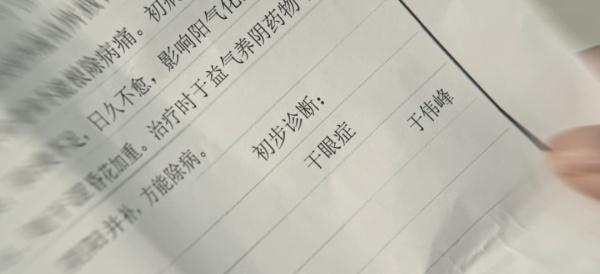 除病痛。初病
日久不愈，影响阳气化
昏花加重。治疗时于益气养阴药物
并补，方能除病。
初步诊断：
干眼症
于伟峰